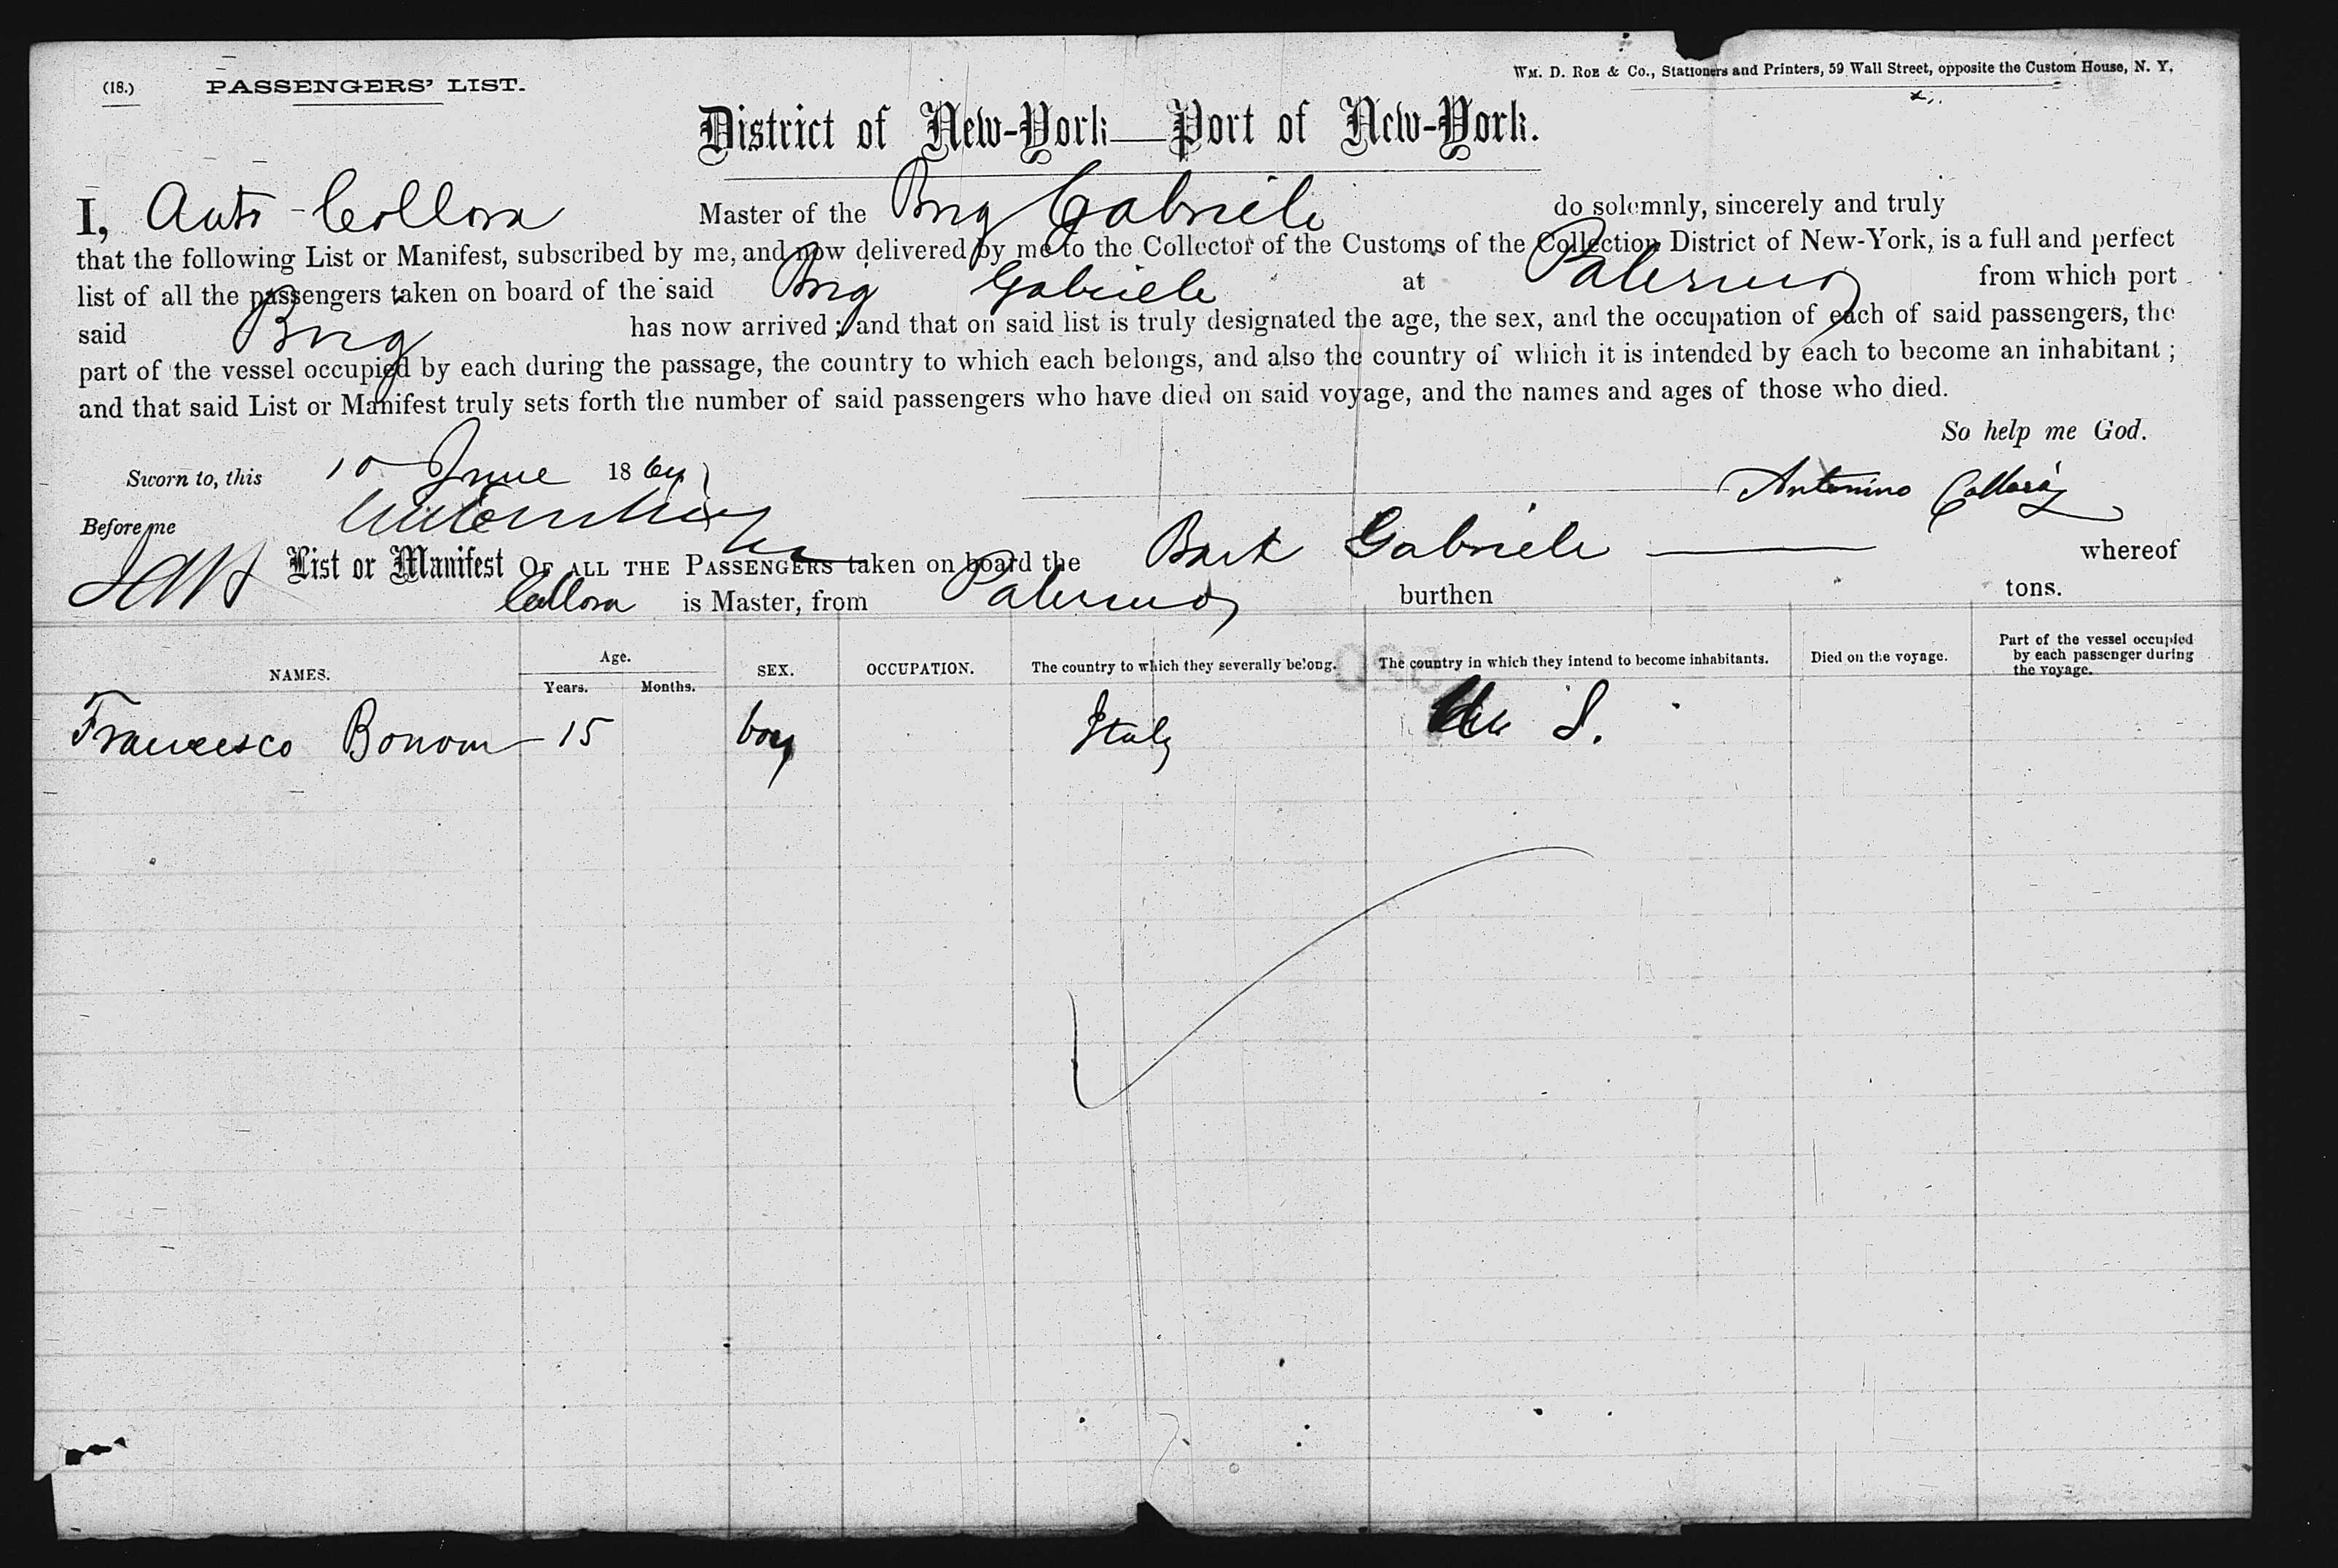 (18.) PASSENGERS' LIST.
WM. D. ROE & CO., Stationers and Printers, 59 Wall Street, opposite the Custom House, N. Y.
District of New-York—Port of New-York.
I, Anto Collora Master of the Brig Gabriele do solemnly, sincerely and truly
that the following List or Manifest, subscribed by me, and now delivered by me to the Collector of the Customs of the Collection District of New-York, is a full and perfect
list of all the passengers taken on board of the said Brig Gabriele at Palermo from which port
said Brig has now arrived; and that on said list is truly designated the age, the sex, and the occupation of each of said passengers, the
part of the vessel occupied by each during the passage, the country to which each belongs, and also the country of which it is intended by each to become an inhabitant;
and that said List or Manifest truly sets forth the number of said passengers who have died on said voyage, and the names and ages of those who died.
So help me God.
Sworn to, this 10 June 18
Antonino Collorà
Before me
List or Manifest OF ALL THE PASSENGERS taken on board the Bark Gabriele whereof
Collora is Master, from Palermo burthen tons.
NAMES. Age. Years. Months. SEX. OCCUPATION. The country to which they severally belong. The country in which they intend to become inhabitants. Died on the voyage. Part of the vessel occupied by each passenger during the voyage.
Francesco 15 boy Italy S.